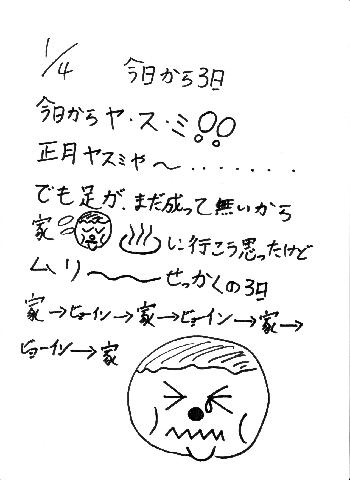 1/4 今日から3日
今日からヤ・ス・ミ!!
正月ヤスミや〜・・・・・・・
でも足が、まだ成って無いから
家 ♨に行こう思ったけど
ムリ〜〜 せっかくの3日
家→ビョーイン→家→ビョーイン→家→
ビョーイン→家